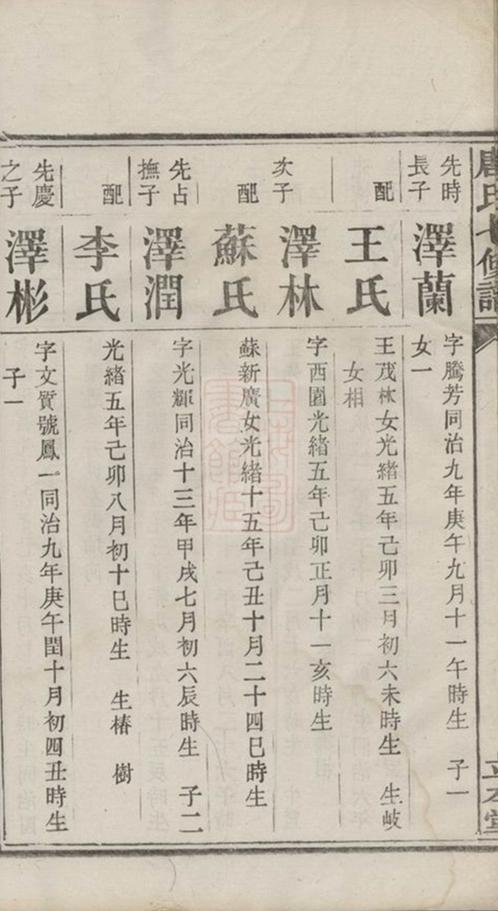 先時
長子
澤蘭
字騰芳同治九年庚午九月十一午時生 子一
女一
配
王氏
王茂林女光緒五年己卯三月初六未時生 生岐
女相
次子
澤林
字西園光緒五年己卯正月十一亥時生
配
蘇氏
蘇新廣女光緒十五年己丑十月二十四巳時生
先占
撫子
澤潤
字光輝同治十三年甲戌七月初六辰時生 子二
配
李氏
光緒五年己卯八月初十巳時生 生椿 樹
先慶
之子
澤彬
字文質號鳳一同治九年庚午閏十月初四丑時生
子一